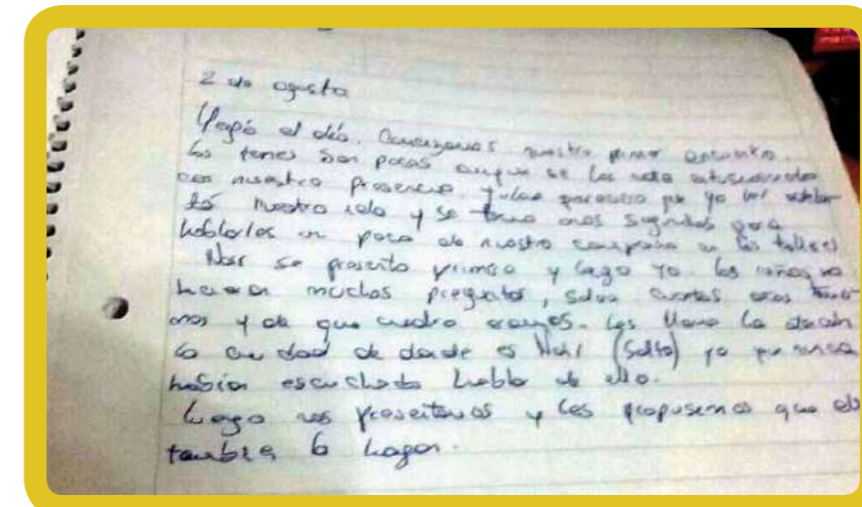 2 de agosto
Llegó el día. Comenzamos nuestro primer encuentro.
Los nenes son pocos aunque se los nota entusiasmados
con nuestra presencia. y los
tó nuestro rol y se tomó unos segundos para
hablarles un poco de nuestra en los talleres
Noir se presentó primero y luego yo. los niños no
hacen muchas preguntas, salvo cuantos años tene
mos y de que cuadro eramos. Les llamo la atención
la ciudad de donde es Noir (Salto) ya que nunca
habían escuchado hablar de ella.
Luego nos presentamos y les propusimos que ell
también lo hagan.